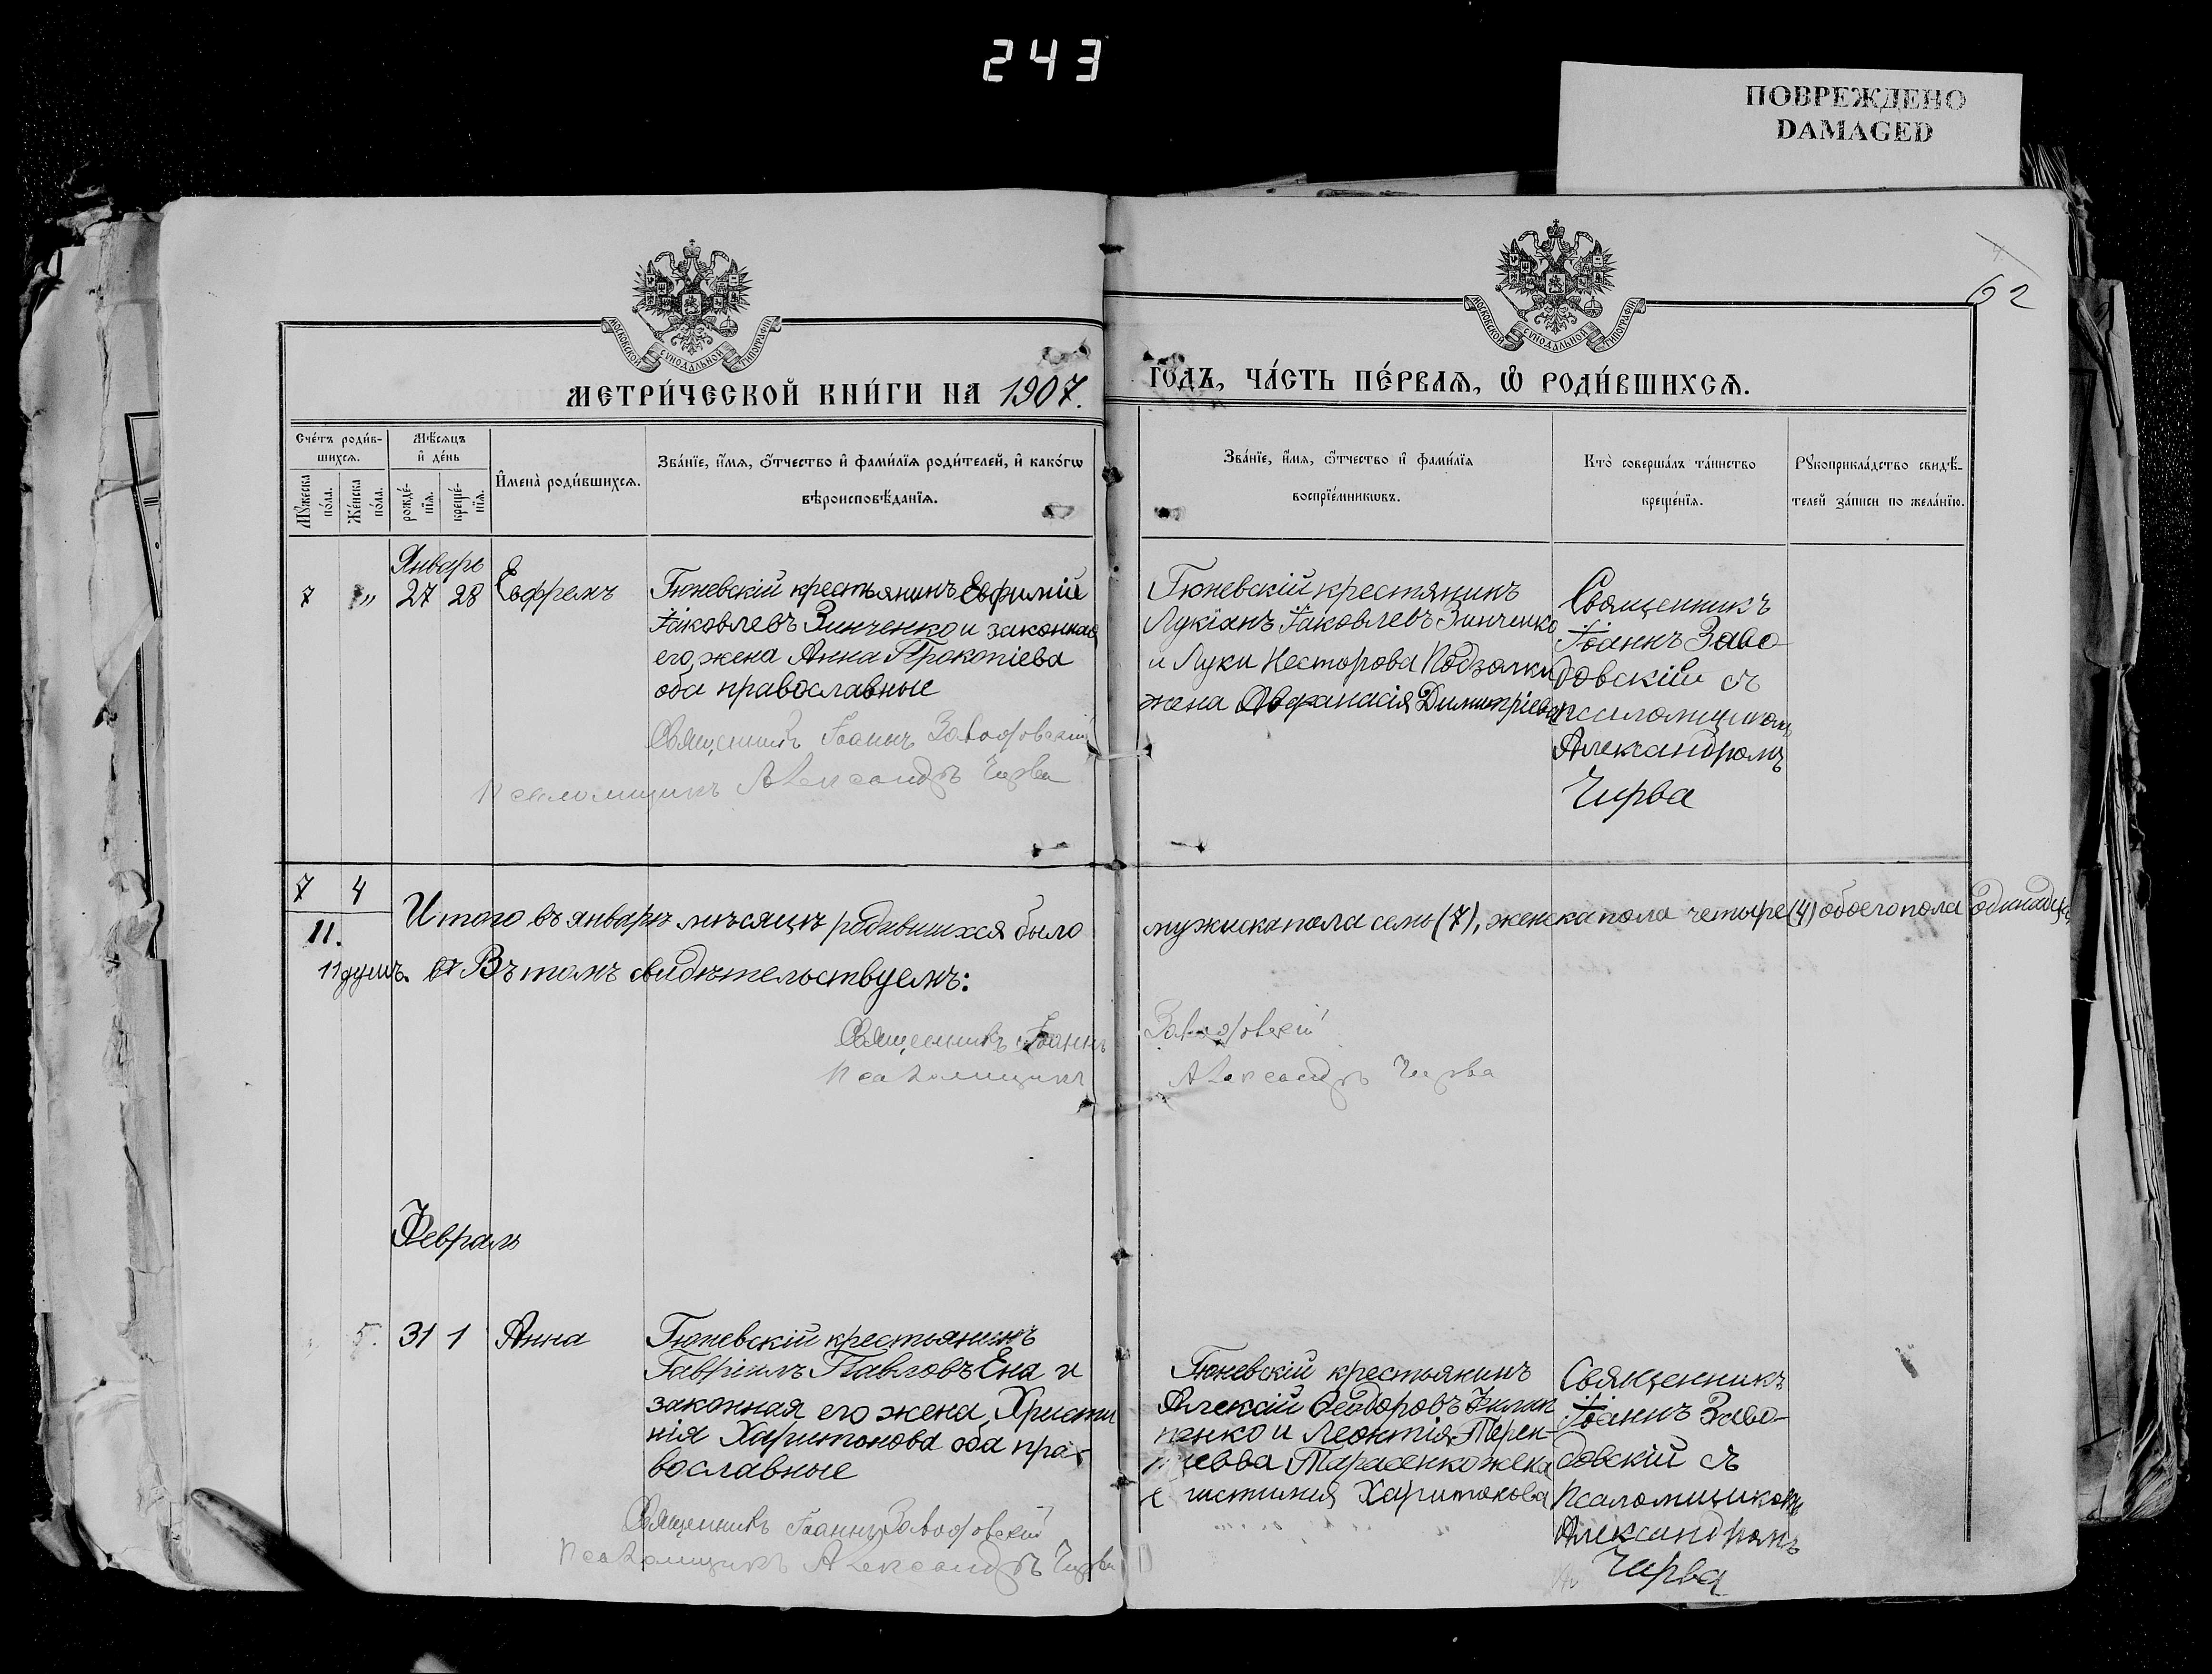 243
ПОВРЕЖДЕНО
DAMAGED
62
МОСКОВСКОЙ СѴНОДАЛЬНОЙ ТИПОГРАФІИ
МОСКОВСКОЙ СѴНОДАЛЬНОЙ ТИПОГРАФІИ
МЕТРИ́ЧЕСКОЙ КНИ́ГИ НА 1907.
ГОДЪ, ЧА́СТЬ ПЕ́РВАѦ, Ѡ РОДИ́ВШИХСѦ.
Сче́тъ роди́в-
шихсѧ.
Мꙋ́жеска
по́ла.
Же́нска
по́ла.
Мѣ́сѧцъ
и҆ де́нь
рожде́-
нїѧ.
креще́-
нїѧ.
И҆мена̀ роди́вшихсѧ.
Зва́нїе, и҆́мѧ, ѻ҆́тчество и҆ фами́лїѧ роди́телей, и҆ како́гѡ
вѣроисповѣ́данїѧ.
Зва́нїе, и҆́мѧ, ѻ҆́тчество и҆ фами́лїѧ
воспрїе́мникѡвъ.
Кто̀ соверша́лъ та́инство
креще́нїѧ.
Рꙋкоприкла́дство свидѣ́-
телей за́писи по жела́нїю.
Январь
7 " 27 28 Ефремъ
Гюневскій крестьянинъ Евфимій
Іаковлевъ Зинченко и законная
его жена Анна Прокопіева
оба православные
Священникъ Іоаннъ Заводовскій
Псаломщикъ Александръ Чирва
Гюневскій крестянинъ
Лукіанъ Іаковлевъ Зинченко
и Луки Несторова
жена Афанасія Димитріева
Священникъ
Іоаннъ Заво-
довскій съ
псаломщикомъ
Александромъ
Чирва
7 4
11.
Итого въ январѣ мѣсяцѣ родившихся было
мужеска пола семь (7), женска пола четыре (4) обоего пола одинадца
11 душъ. Въ томъ свидѣтельствуемъ:
Священникъ Іоаннъ Заводовскій
Псаломщикъ Александръ Чирва
Февраль
5. 31 1 Анна
Гюневскій крестьянинъ
Гавріилъ Павловъ Ена и
законная его жена Христи
нія Харитонова оба пра-
вославные
Священникъ Іоаннъ Заводовскій
Псаломщикъ Александръ Чирва
Гюневскій крестьянинъ
Алексій Ѳеодоровъ Филип
пенко и Леонтія Терен-
Тарасенко жена
Харитонова
Священникъ
Іоаннъ Заво-
довскій съ
Псаломщикомъ
Александромъ
Чирва